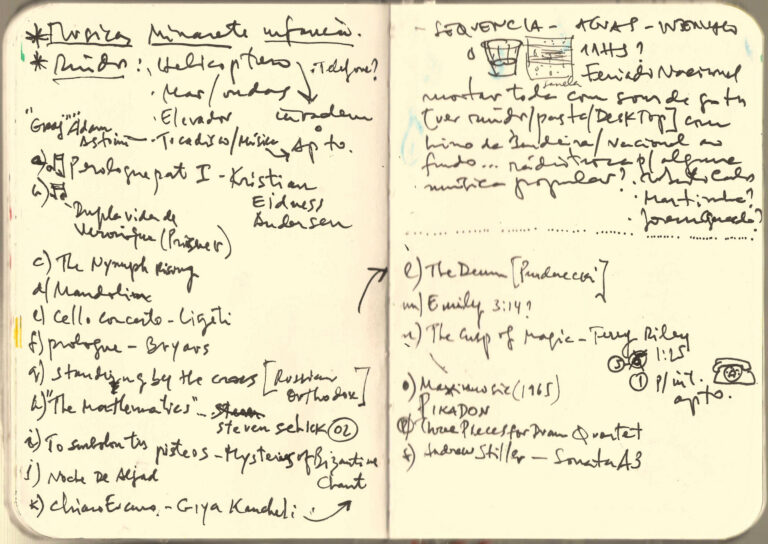 * Músicas Minarete infancia.
* Ruídos:, Helicóptero
· Telefone?
· Mar/ondas
· Elevador
"Gravy" Adam
· Tocadisco/Música
Apto.
a) Perologue pat I - Kristian
Eidness
Andersen
b)
Dupla vida de
Veronique (Prisner)
c) The Nymph Rising
d) Mandoline
e) cello concerto - Ligeti
f) prologue - Bryars
g) standing by the cross [Russian
Orthodox]
h) "The Mathematics" -
steven schick 02
i) To simbolon tis pisteos - Mysteries of Bizantine
Chant
j) Noche De
k) chiaroEscuro - Giya Kancheli
- SEQUENCIA - AGUAS -
11HS?
janela
Feriado Nacional
mostar toda com som de
[ver ruído/pasta/DeskTop] com
hino da Bandeira/Nacional ao
fundo... rádio troca p/ alguma
música popular?
· Martinho?
l) The Deum [Penderecki]
m) Emily 3:14?
n) The Cusp of Magic - Terry Riley
1:25
1 p/ int.
apto.
o) (1965)
PIKADON
Three Pieces for Drum Quartet
Andrew Stiller - Sonata A3